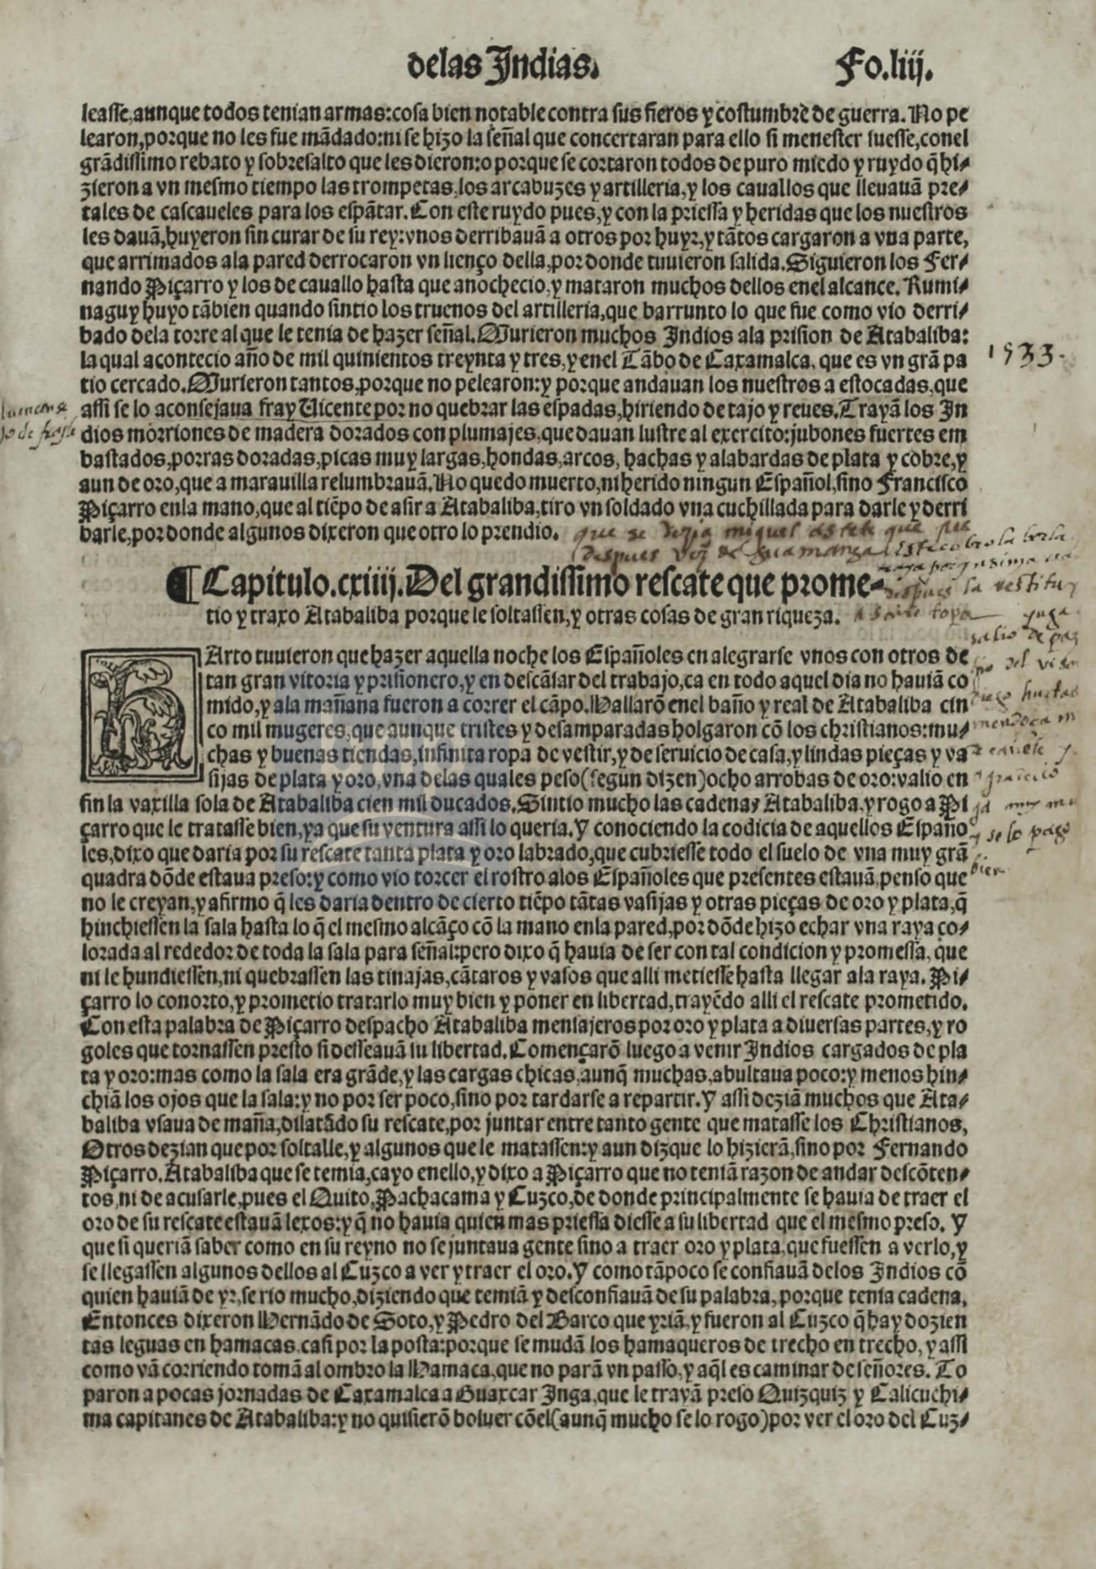 delas Indias. Fo.liij.
leasse,aunque todos tenian armas:cosa bien notable contra sus fieros y costumbre de guerra. No pe
learon,porque no les fue mãdado:ni se hizo la señal que concertaran para ello si menester fuesse,conel
grãdissimo rebato y sobresalto que les dieron:o porque se cortaron todos de puro miedo y ruydo q̃ hi-
zieron a vn mesmo tiempo las trompetas,los arcabuzes y artilleria,y los cavallos que llevauã pre-
tales de cascaveles para los espãtar. Con este ruydo pues,y con la priessa y heridas que los nuestros
les dauã,huyeron sin curar de su rey:vnos derribauã a otros por huyr,y tãtos cargaron a vna parte,
que arrimados ala pared derrocaron vn lienço della,por donde tuuieron salida. Siguieron los Fer-
nando Piçarro y los de cauallo hasta que anochecio,y mataron muchos dellos enel alcance. Rumi-
naguy huyo tãbien quando sintio los truenos del artilleria,que barrunto lo que fue como vio derri-
bado dela torre al que le tenia de hazer señal. Murieron muchos Indios ala prision de Atabaliba:
la qual acontecio año de mil quinientos treynta y tres,y enel Tãbo de Caxamalca, que es vn grã pa
1533.
tio cercado. Murieron tantos,porque no pelearon:y porque andauan los nuestros a estocadas,que
assi se lo aconsejaua fray Vicente por no quebrar las espadas,hiriendo de tajo y reues. Trayã los In
dios morriones de madera dorados con plumajes,que dauan lustre al exercito:jubones fuertes em
bastados,porras doradas,picas muy largas,hondas,arcos, hachas y alabardas de plata y cobre,y
aun de oro,que a marauilla relumbrauã. No quedo muerto,ni herido ningun Español,sino Francisco
Piçarro enla mano,que al tiẽpo de asir a Atabaliba,tiro vn soldado vna cuchillada para darle y derri
barle,por donde algunos dixeron que otro lo prendio.
que se dezia miguel astete que fue
despues de guamanga
¶Capitulo.cxiiij.Del grandissimo rescate que prome-
tio y traxo Atabaliba porque le soltassen,y otras cosas de gran riqueza.
HArto tuuieron que hazer aquella noche los Españoles en alegrarse vnos con otros de
tan gran vitoria y prisionero,y en descãsar del trabajo,ca en todo aquel dia no hauiã co
mido,y ala mañana fueron a correr el cãpo. Hallarõ enel baño y real de Atabaliba cin
co mil mugeres,que aunque tristes y desamparadas holgaron cõ los christianos:mu-
chas y buenas tiendas,infinita ropa de vestir,y de seruicio de casa,y lindas pieças y va
sijas de plata y oro,vna delas quales peso(segun dizen)ocho arrobas de oro:valio en
fin la vaxilla sola de Atabaliba cien mil ducados. Sintio mucho las cadenas Atabaliba,y rogo a Pi
çarro que le tratasse bien,ya que su ventura assi lo queria. Y conociendo la codicia de aquellos Españo
les,dixo que daria por su rescate tanta plata y oro labrado,que cubriesse todo el suelo de vna muy grã
quadra dõde estaua preso:y como vio torcer el rostro alos Españoles que presentes estauã,penso que
no le creyan,y afirmo q̃ les daria dentro de cierto tiẽpo tãtas vasijas y otras pieças de oro y plata,q̃
hinchiessen la sala hasta lo q̃ el mesmo alcãço cõ la mano enla pared,por dõde hizo echar vna raya co-
lorada al rededor de toda la sala para señal:pero dixo q̃ hauia de ser con tal condicion y promessa, que
ni le hundiessen,ni quebrassen las tinajas,cãtaros y vasos que alli metiesse hasta llegar ala raya. Pi-
çarro lo conorto,y prometio tratarlo muy bien y poner en libertad,trayẽdo alli el rescate prometido.
Con esta palabra de Piçarro despacho Atabaliba mensajeros por oro y plata a diuersas partes,y ro
goles que tornassen presto si desseauã su libertad. Començarõ luego a venir Indios cargados de pla
ta y oro:mas como la sala era grãde,y las cargas chicas,aunq̃ muchas,abultaua poco:y menos hin-
chiã los ojos que la sala:y no por ser poco,sino por tardarse a repartir. Y assi deziã muchos que Ata-
baliba vsaua de maña,dilatãdo su rescate,por juntar entre tanto gente que matasse los Christianos,
Otros dezian que por soltalle,y algunos que le matassen:y aun dizque lo hizierã,sino por Fernando
Piçarro. Atabaliba que se temia,cayo enello,y dixo a Piçarro que no teniã razon de andar descõten-
tos,ni de acusarle,pues el Quito,Pachacama y Cuzco,de donde principalmente se hauia de traer el
oro de su rescate estauã lexos:y q̃ no hauia quien mas priessa diesse a su libertad que el mesmo preso. Y
que si queriã saber como en su reyno no se juntaua gente sino a traer oro y plata,que fuessen a verlo,y
se llegassen algunos dellos al Cuzco a ver y traer el oro. Y como tãpoco se confiauã delos Indios cõ
quien hauiã de yr,se rio mucho,diziendo que temiã y desconfiauã de su palabra, porque tenia cadena,
Entonces dixeron Hernãdo de Soto,y Pedro del Barco que yriã,y fueron al Cuzco q̃ hay dozien
tas leguas en hamacas,casi por la posta:porque se mudã los hamaqueros de trecho en trecho, y assi
como vã corriendo tomã al ombro la Hamaca,que no parã vn passo,y aq̃l es caminar de señores. To
paron a pocas jornadas de Caxamalca a Guaxcar Inga,que le trayã preso Quizquiz y Calicuchi-
ma capitanes de Atabaliba:y no quisierõ boluer cõel(aunq̃ mucho se lo rogo)por ver el oro del Cuz-